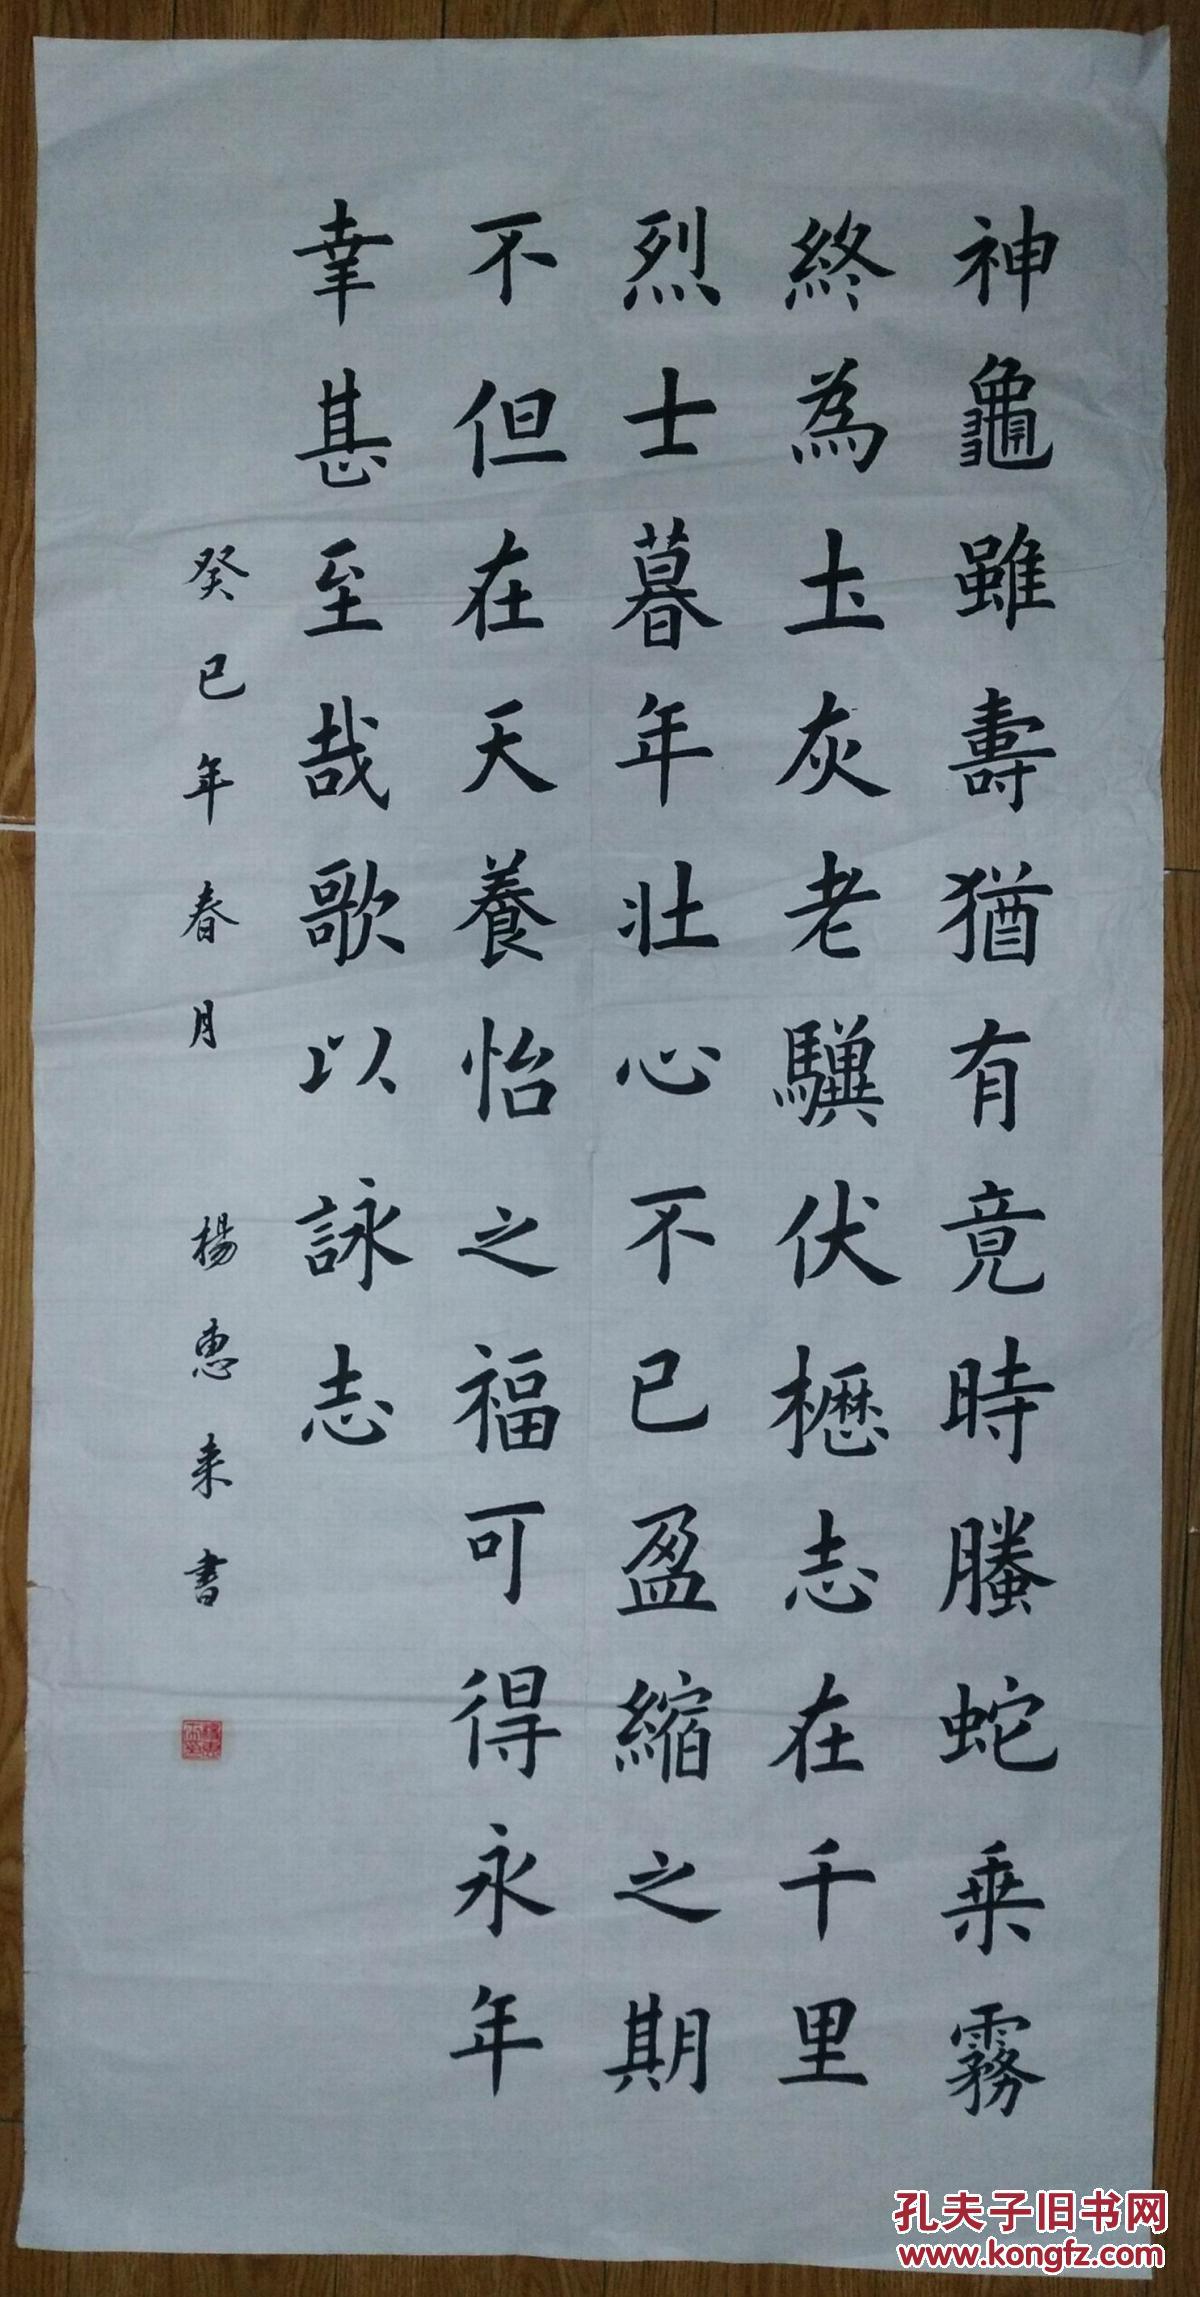 神龜雖壽猶有竟時螣蛇乗霧
終為土灰老驥伏櫪志在千里
烈士暮年壯心不已盈縮之期
不但在天養怡之福可得永年
幸甚至哉歌以詠志
癸巳年春月 楊惠来書
孔夫子旧书网
www.kongfz.com